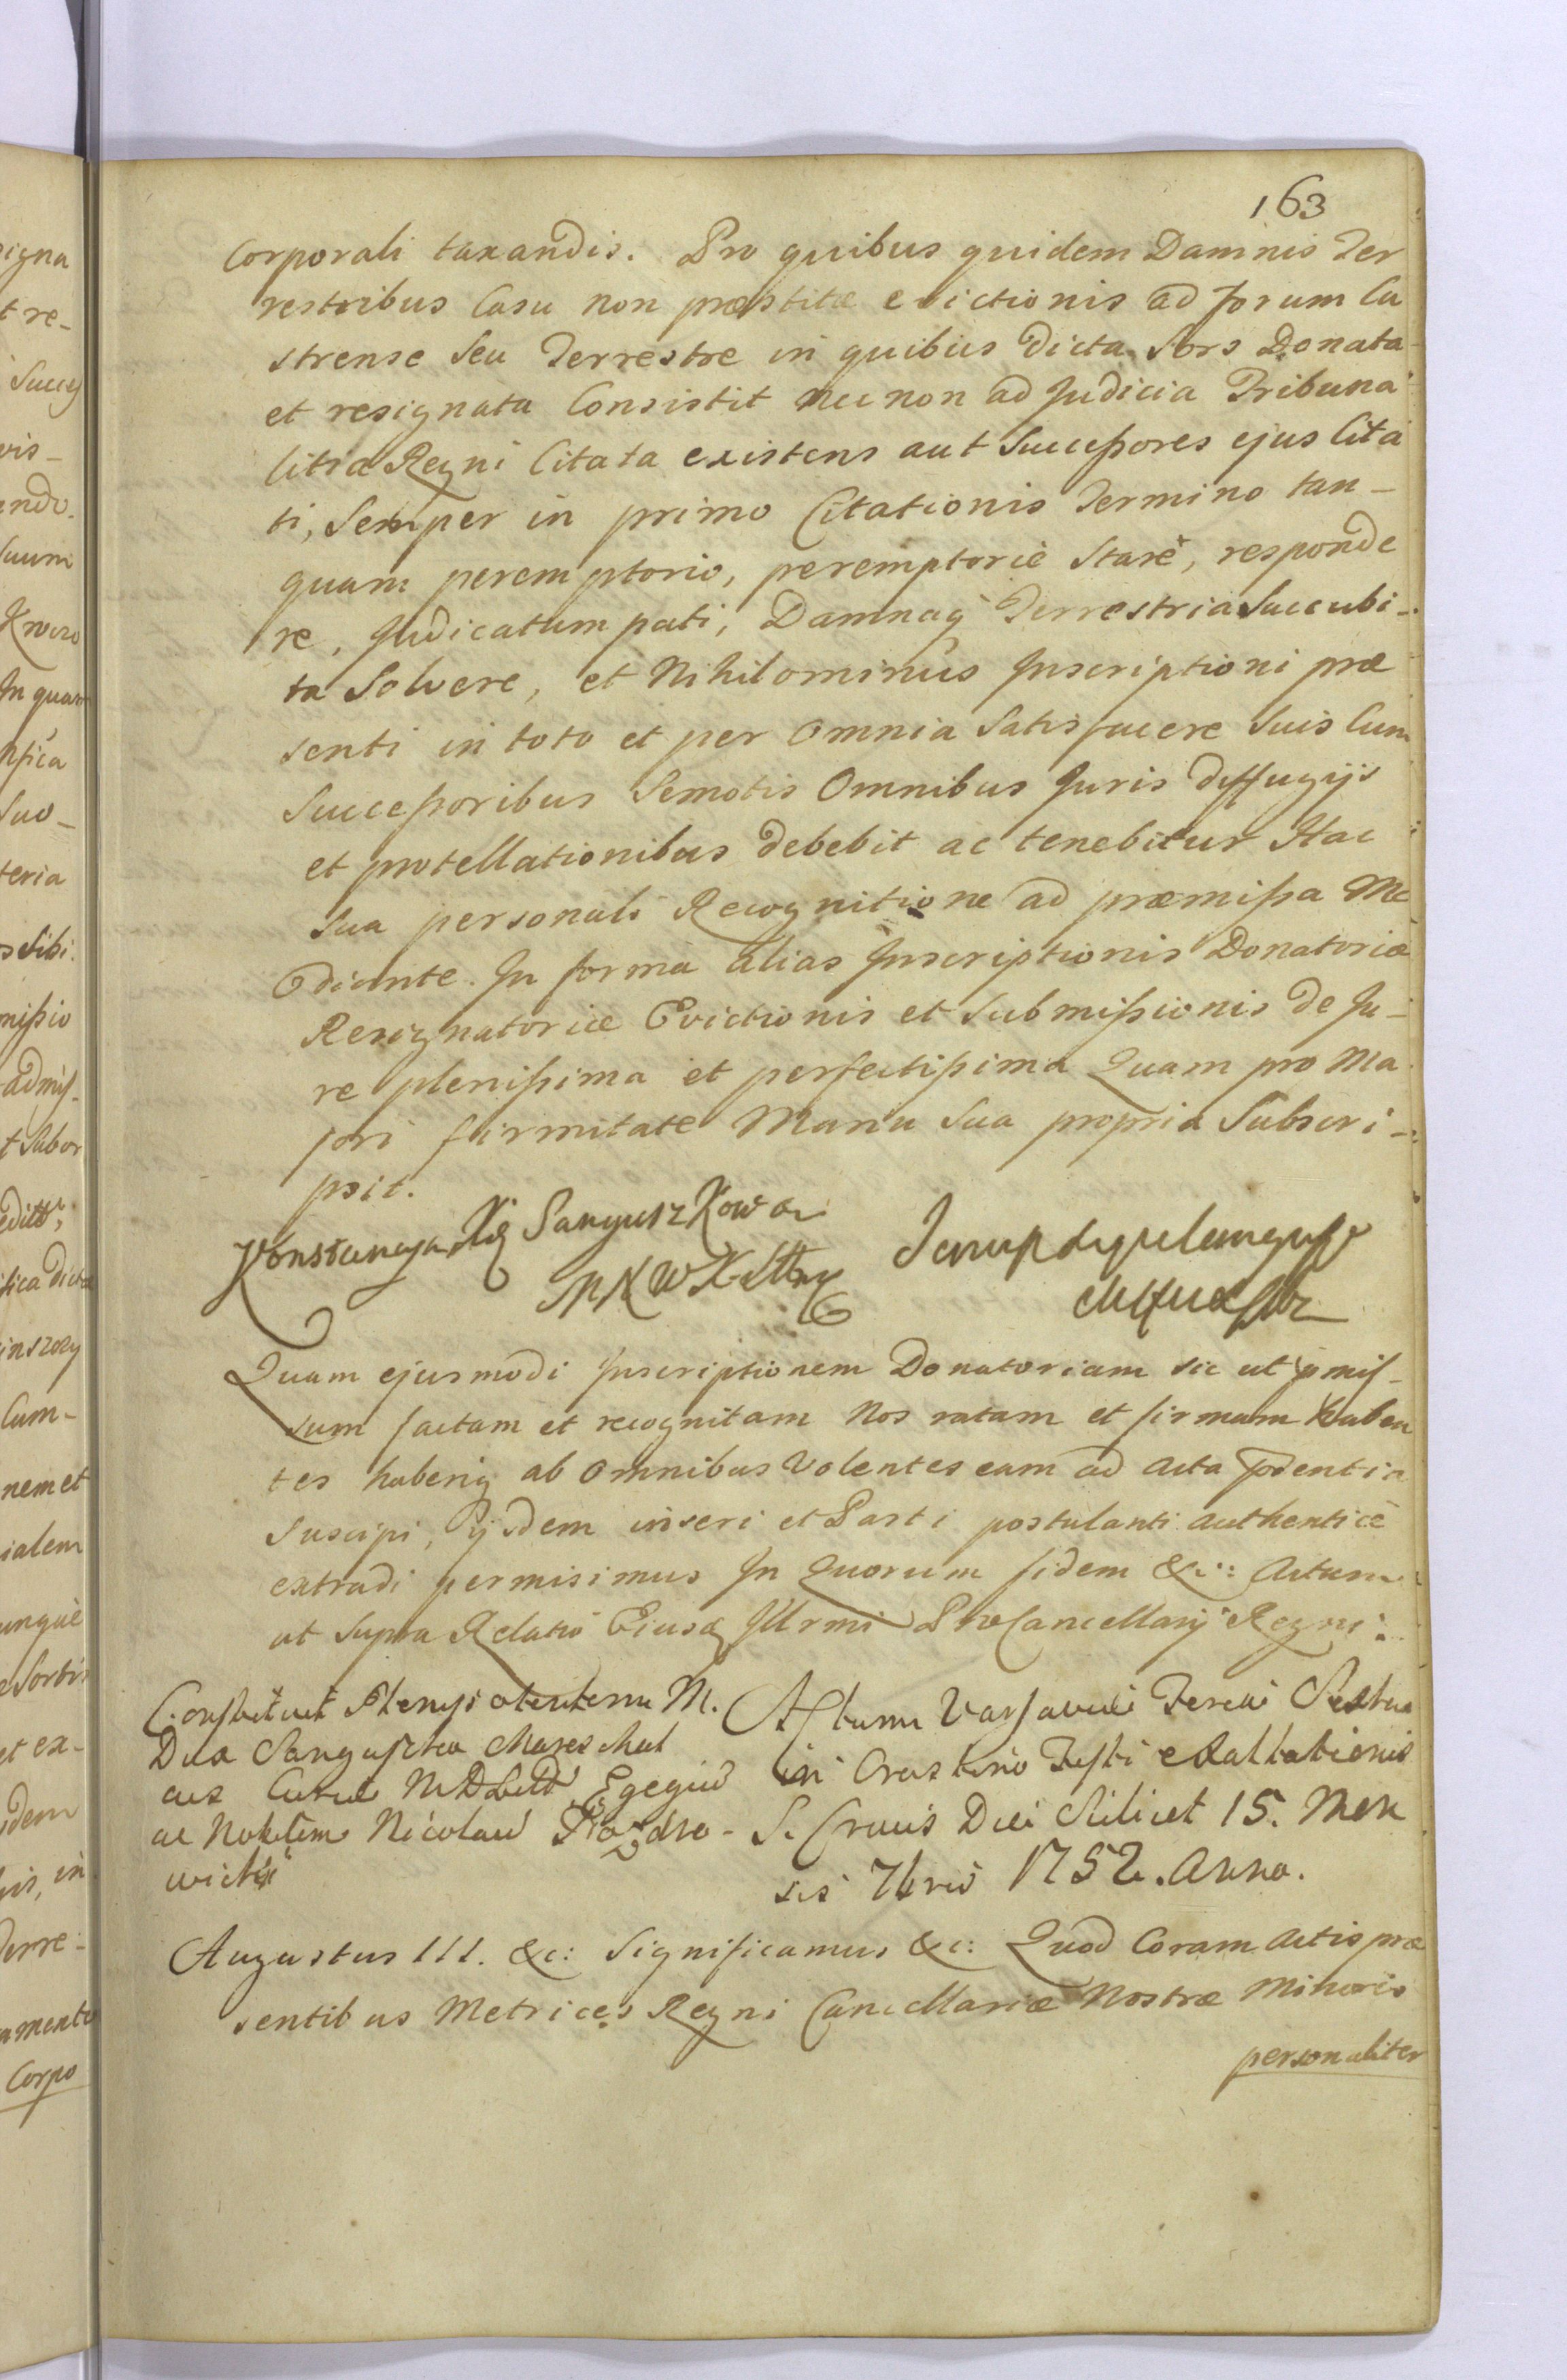 163
Corporali taxandis. Pro quibus quidem Damnis Ter
restribus Casu non præstitæ evictionis ad forum Ca
strense seu Terrestre in quibus dicta Sors Donata
et resignata Consistit nec non ad Judicia Tribuna
litia Regni Citata existens aut Successores ejus Cita
ti, Semper in primo Citationis Termino tan-
quam peremptorio, peremptorie stare, responde
re, Judicatum pati, Damnaq Terrestria succubi-
ta Solvere, et Nihilominus Inscriptioni præ
senti in toto et per omnia satisfacere suis Cum
Successoribus Semotis Omnibus Juris diffugijs
et protellationibus debebit ac tenebitur Hac
sua personali Recognitione ad præmissa Me
diante. In forma alias Inscriptionis Donatoriæ
Resignatoriæ Evictionis et Submissionis de Ju-
re plenissima et perfectissima Quam pro Ma
jori firmitate Manu Sua propria Subscri-
psit.
Konstancya Sanguszkowa
Quam ejusmodi Inscriptionem Donatoriam sic ut pmis-
sum factam et recognitam Nos ratam et firmam haben
tes haberiq ab omnibus Volentes eam ad Acta
Suscipi, ijsdem inseri et Parti postulanti authenticè
extradi permisimus In Quorum fidem &c: Actum
ut supra Relatio Ejusd Illrmi ProCancellarij Regni:
Constituit Plenipotentem M.
Dux Sanguszko Mareschal
cus Curiæ Egregiu
ac Nobilem Nicolau
wicki
Actum Varsaviæ Feria Sexta
in Crastino Festi exaltationis
S. Crucis Die Scilicet 15. Men
sis 7bris 1752. Anno.
Augustus III. &c: Significamus &c: Quod Coram Actis præ
sentibus Metrices Regni Cancellariæ Nostræ Minoris
personaliter